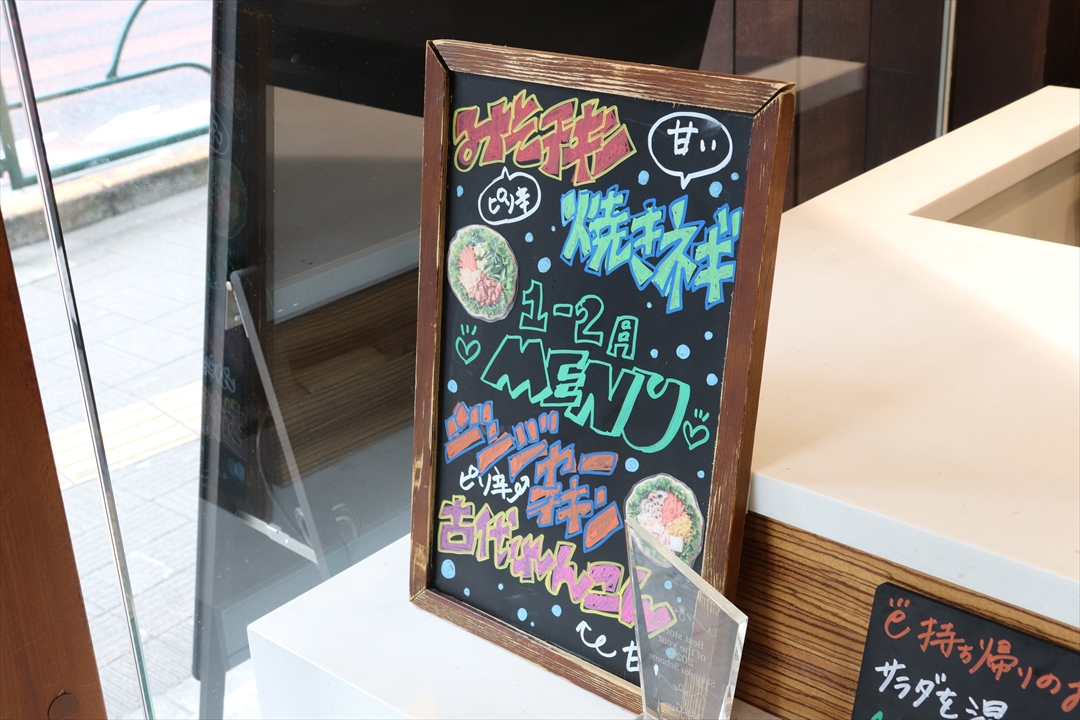 みそチキン
甘い
ピリ辛
焼きネギ
1-2月
MENU
ジンジャー
チキン
ピリ辛
古代れんこん
甘
Best store
of the year
持ち帰りの
サラダを